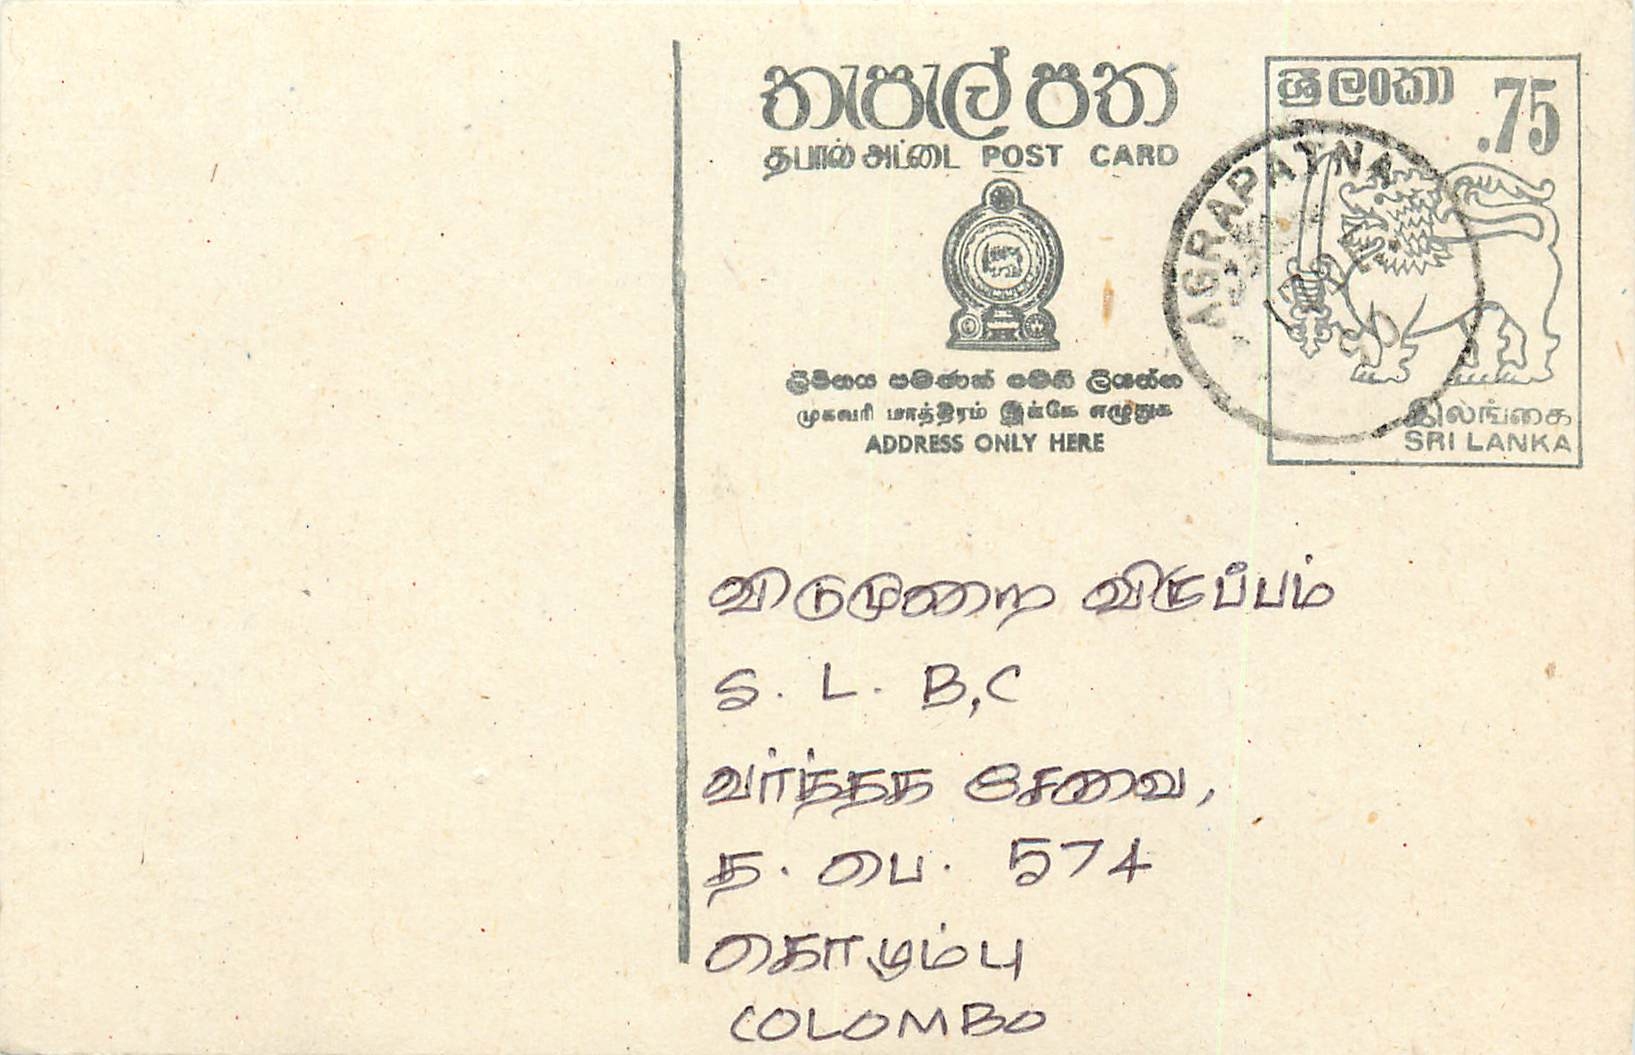 තැපැල් පත
தபால் அட்டை POST CARD
ලිපිනය පමණක් මෙහි ලියන්න
முகவரி மாத்திரம் இங்கே எழுதுக
ADDRESS ONLY HERE
ශ්‍රී ලංකා
.75
AGRAPATNA
இலங்கை
SRI LANKA
விடுமுறை விருப்பம்
S. L. B,C
வர்த்தக சேவை,
த. பை. 574
கொழும்பு
COLOMBO